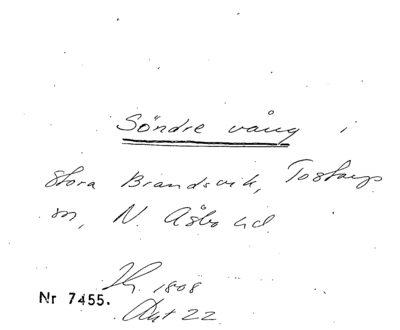 Söndre vång i
Stora Brandsvik, Tostarps
sn, N. Åsbo hd
Hg. 1808
Akt 22
Nr 7455.